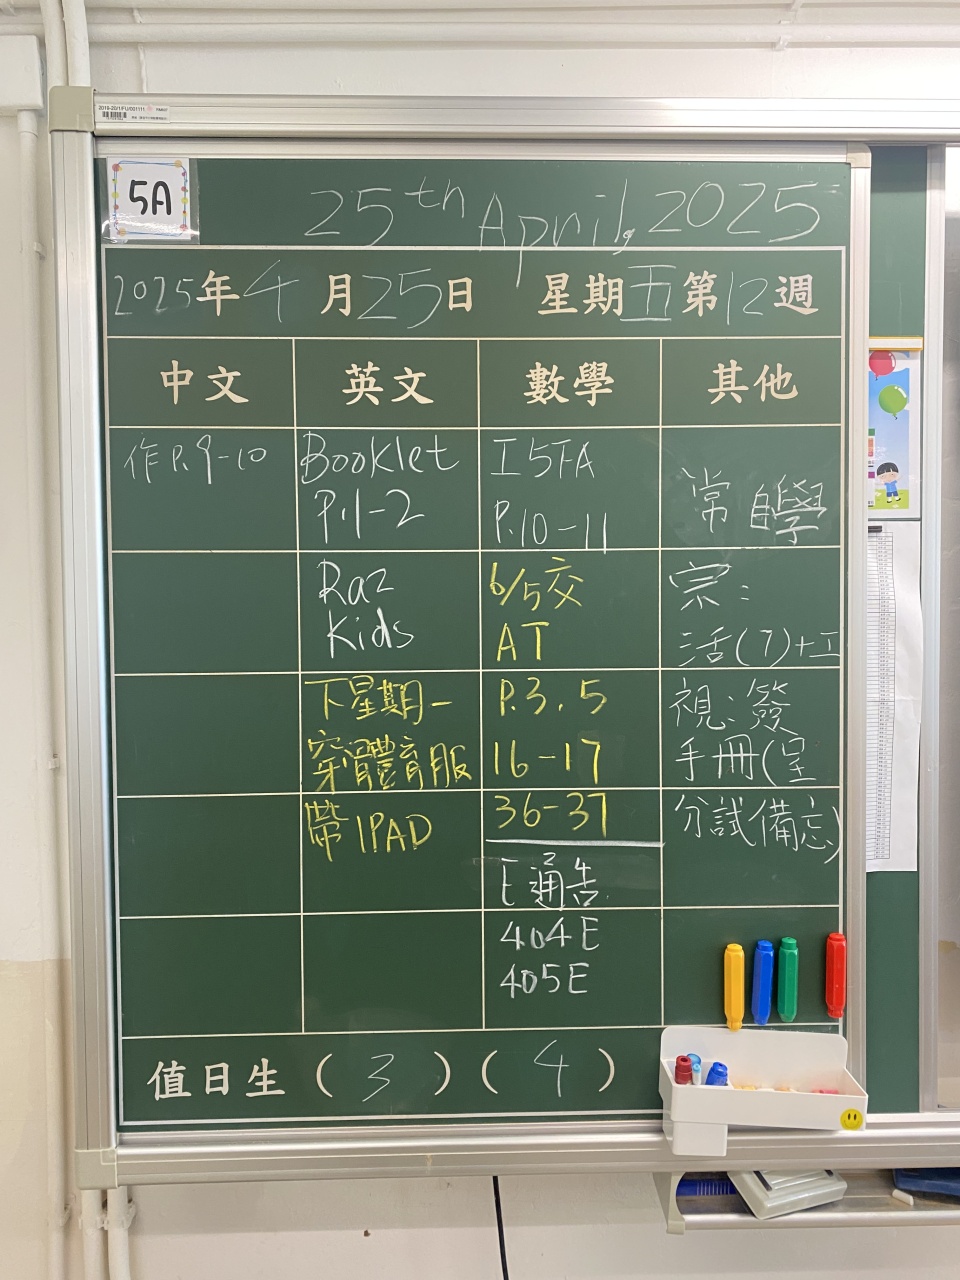 2019-20/1/FU/001111
5A
25th April, 2025
2025年4月25日 星期五 第12週
中文 英文 數學 其他
作P.9-10
Booklet
P.1-2
Raz
Kids
下星期一
穿體育服
帶IPAD
I5FA
P.10-11
6/5交
AT
P.3, 5
16-17
36-37
E通告
404E
405E
常自學
宗:
活(7)+工
視:簽
手冊(呈
分試備忘)
值日生 (3) (4)